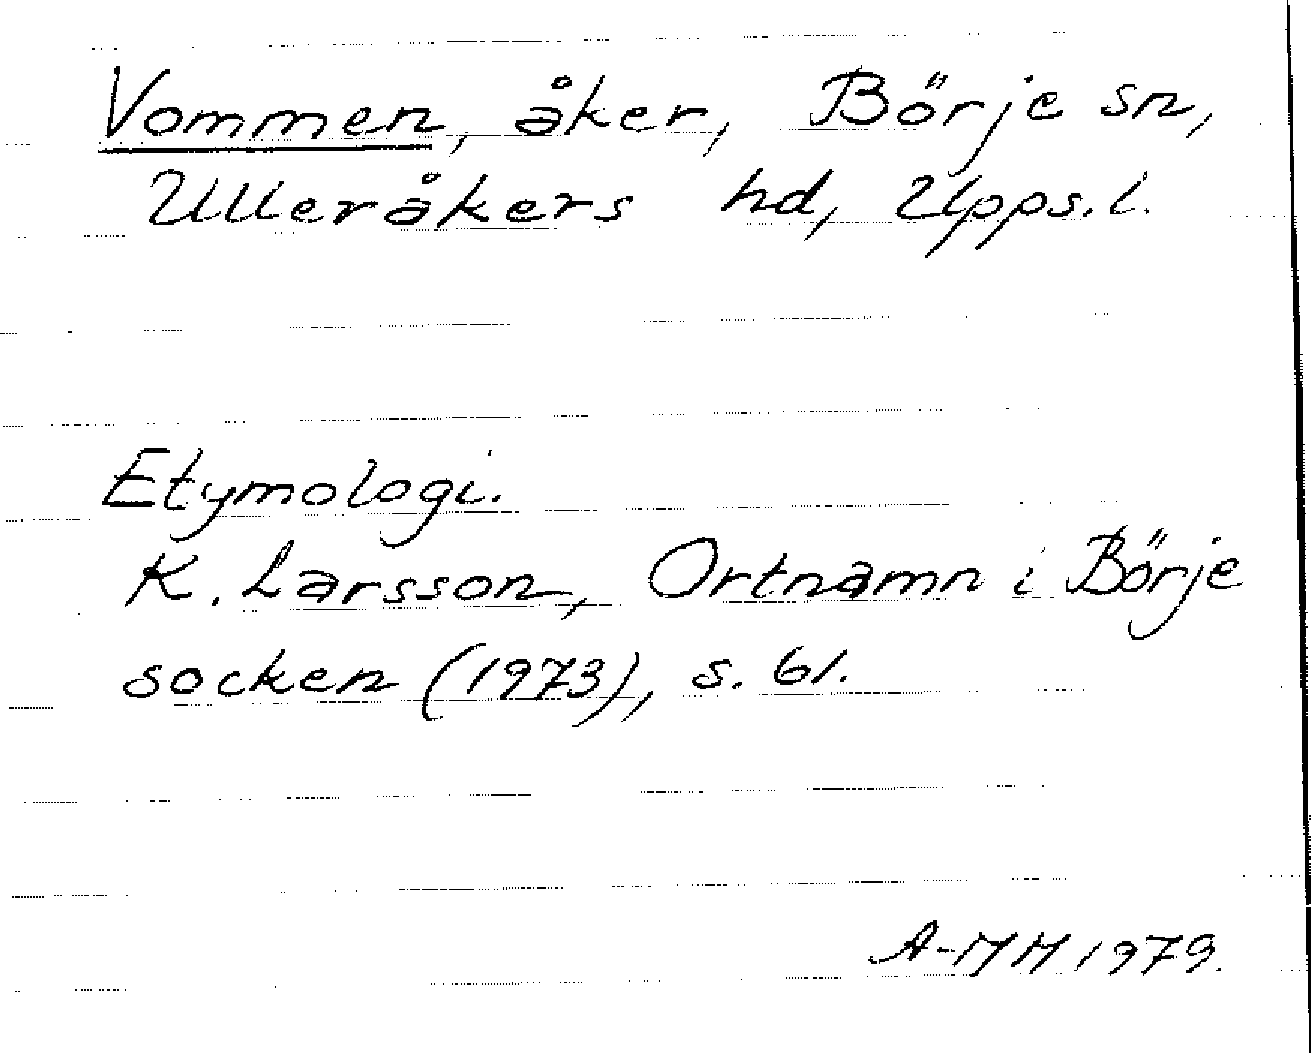 Vommen, åker, Börje sn,
Ulleråkers hd, Upps. l.
Etymologi.
K. Larsson, Ortnamn i Börje
socken (1973), s. 61.
A-MH 1979.